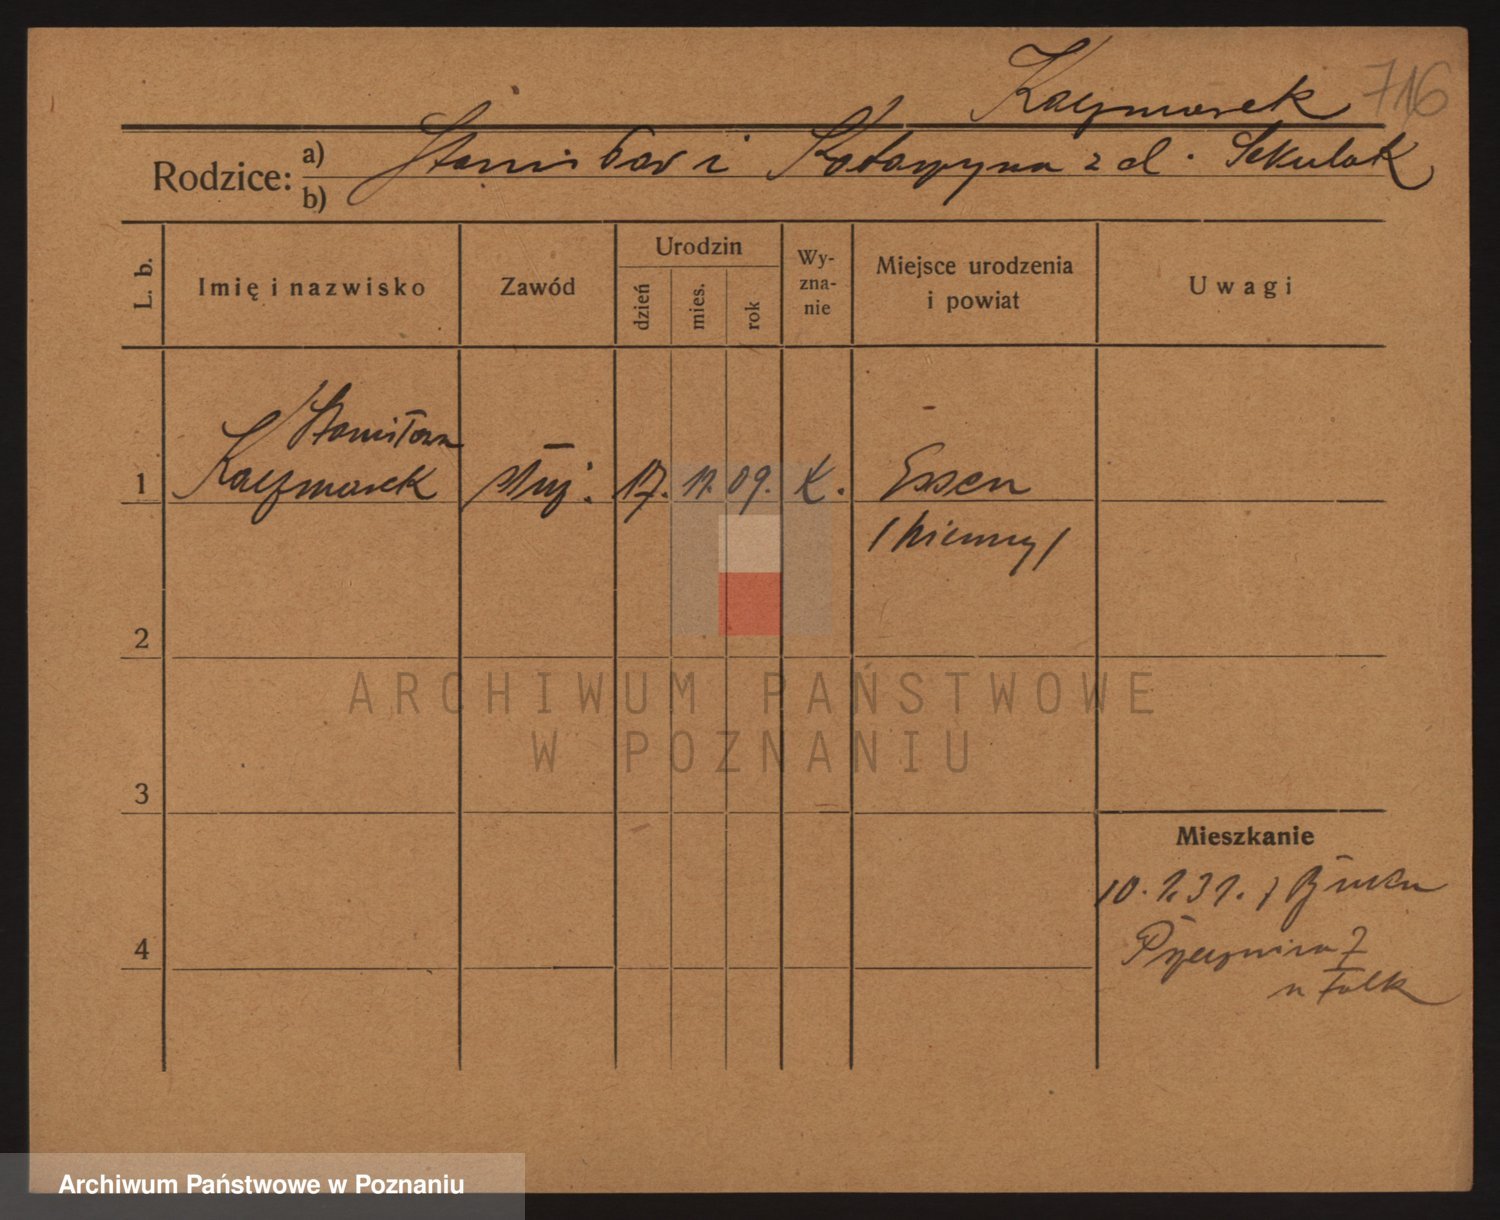 Kaczmarek 716
Rodzice: a) Stanisław i Katarzyna z d. Sekulak
b)
L. b. Imię i nazwisko Zawód Urodzin dzień mies. rok Wyznanie Miejsce urodzenia i powiat Uwagi
Stanisława
1 Kaczmarek służ. 17. 11. 09. k. Essen
/Niemcy/
2
ARCHIWUM PAŃSTWOWE
W POZNANIU
3
Mieszkanie
10. 1. 31. z Buku
4
Archiwum Państwowe w Poznaniu